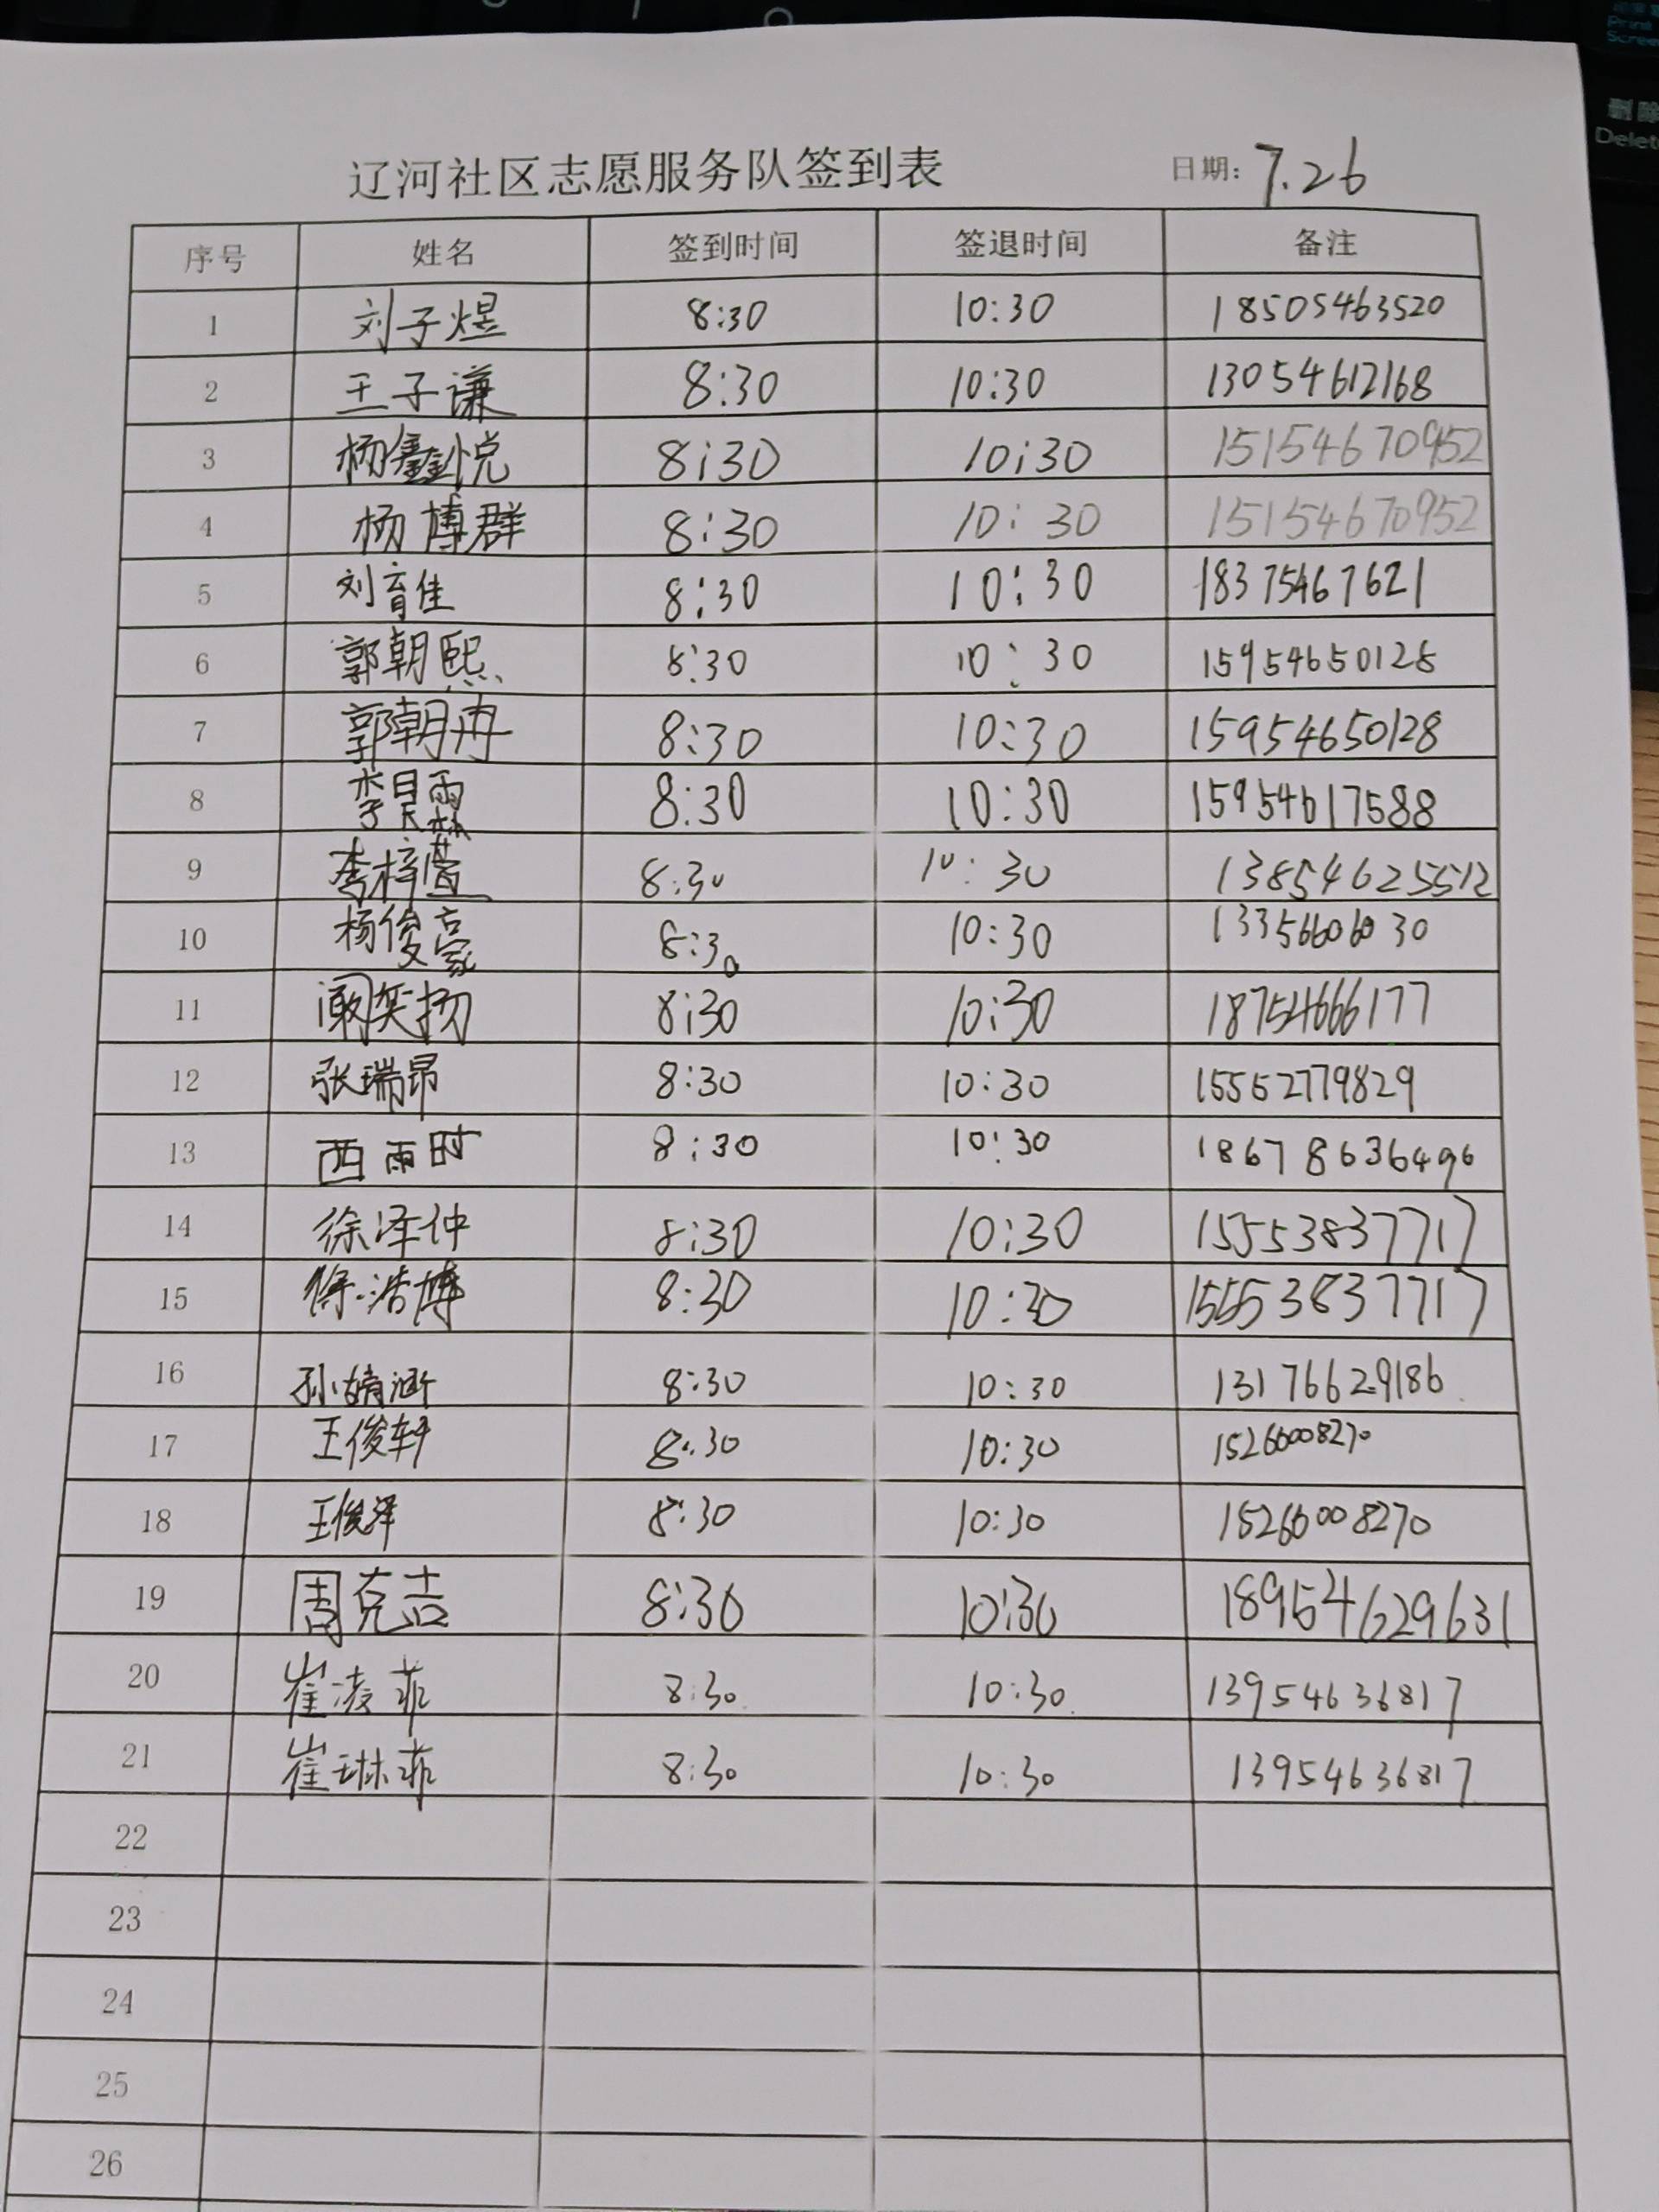 辽河社区志愿服务队签到表 日期: 7.26
序号 姓名 签到时间 签退时间 备注
1 刘子煜 8:30 10:30 18505463520
2 王子谦 8:30 10:30 13054612168
3 杨鑫悦 8:30 10:30 15154670952
4 杨博群 8:30 10:30 15154670952
5 刘育佳 8:30 10:30 18375467621
6 郭朝熙 8:30 10:30 15954650128
7 郭朝冉 8:30 10:30 15954650128
8 李昊霖 8:30 10:30 15954617588
9 李梓萱 8:30 10:30 13854625512
10 杨俊豪 8:30 10:30 13356606030
11 阚奕扬 8:30 10:30 18754666177
12 张瑞昂 8:30 10:30 15552779829
13 西雨时 8:30 10:30 18678636496
14 徐泽仲 8:30 10:30 15553837717
15 徐浩博 8:30 10:30 15553837717
16 孙婧涵 8:30 10:30 13176629186
17 王俊轩 8:30 10:30 15266008270
18 王俊泽 8:30 10:30 15266008270
19 周克吉 8:30 10:30 18954629631
20 崔凌菲 8:30 10:30 13954636817
21 崔琳菲 8:30 10:30 13954636817
22
23
24
25
26